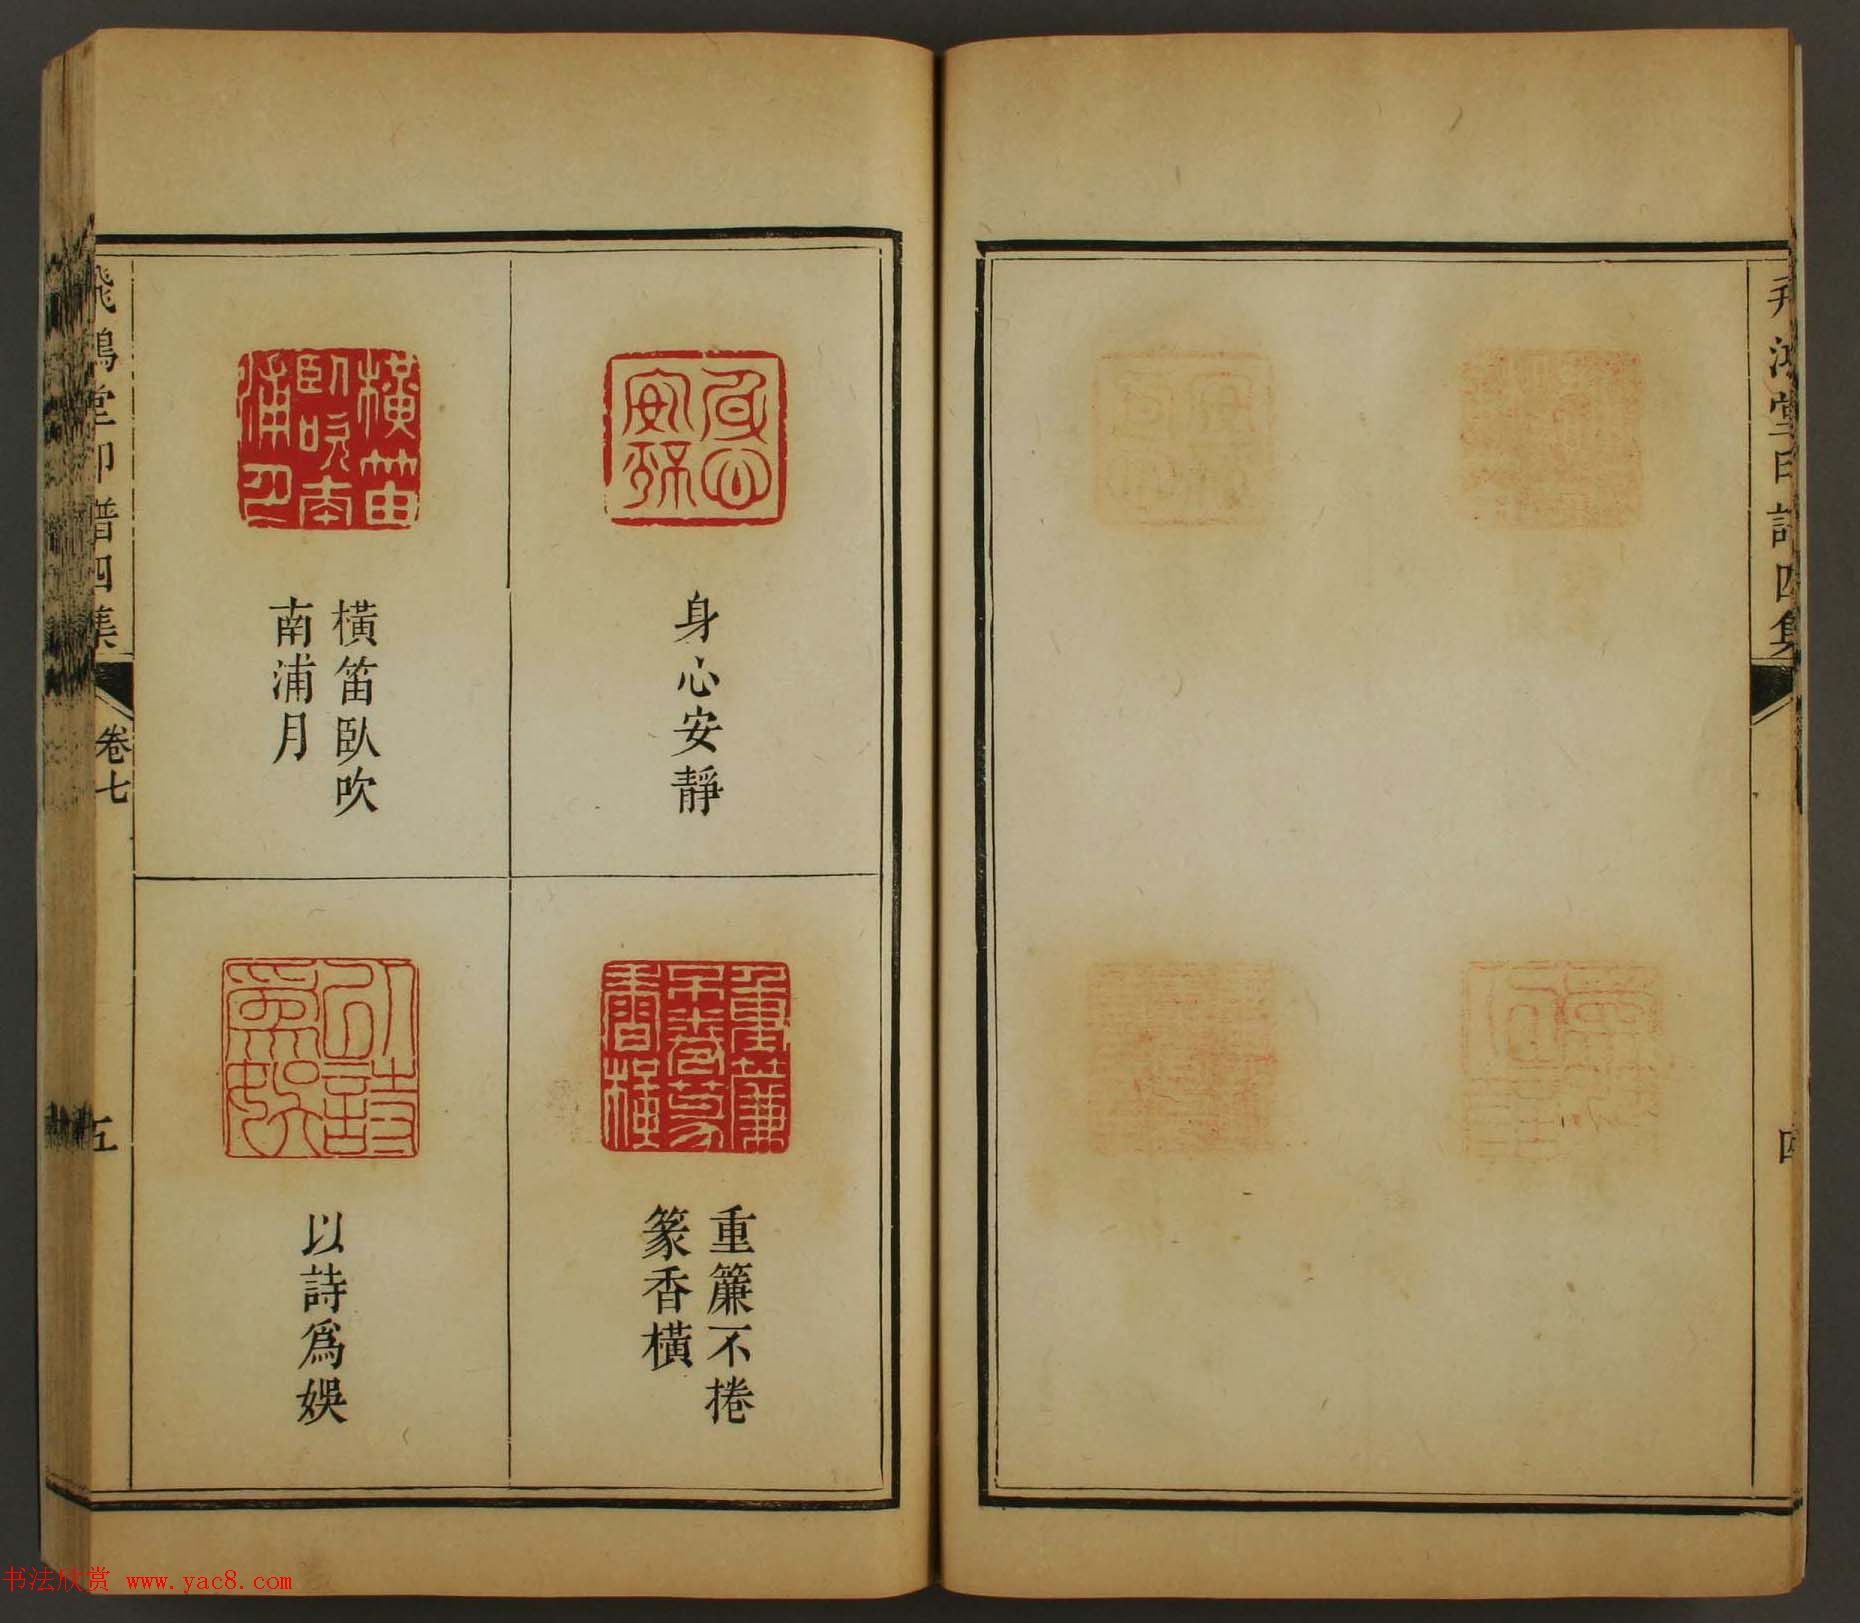 飛鴻堂印譜四集
四
身心安靜
橫笛臥吹
南浦月
重簾不捲
篆香橫
以詩爲娛
飛鴻堂印譜四集
卷七
五
书法欣赏 www.yac8.com